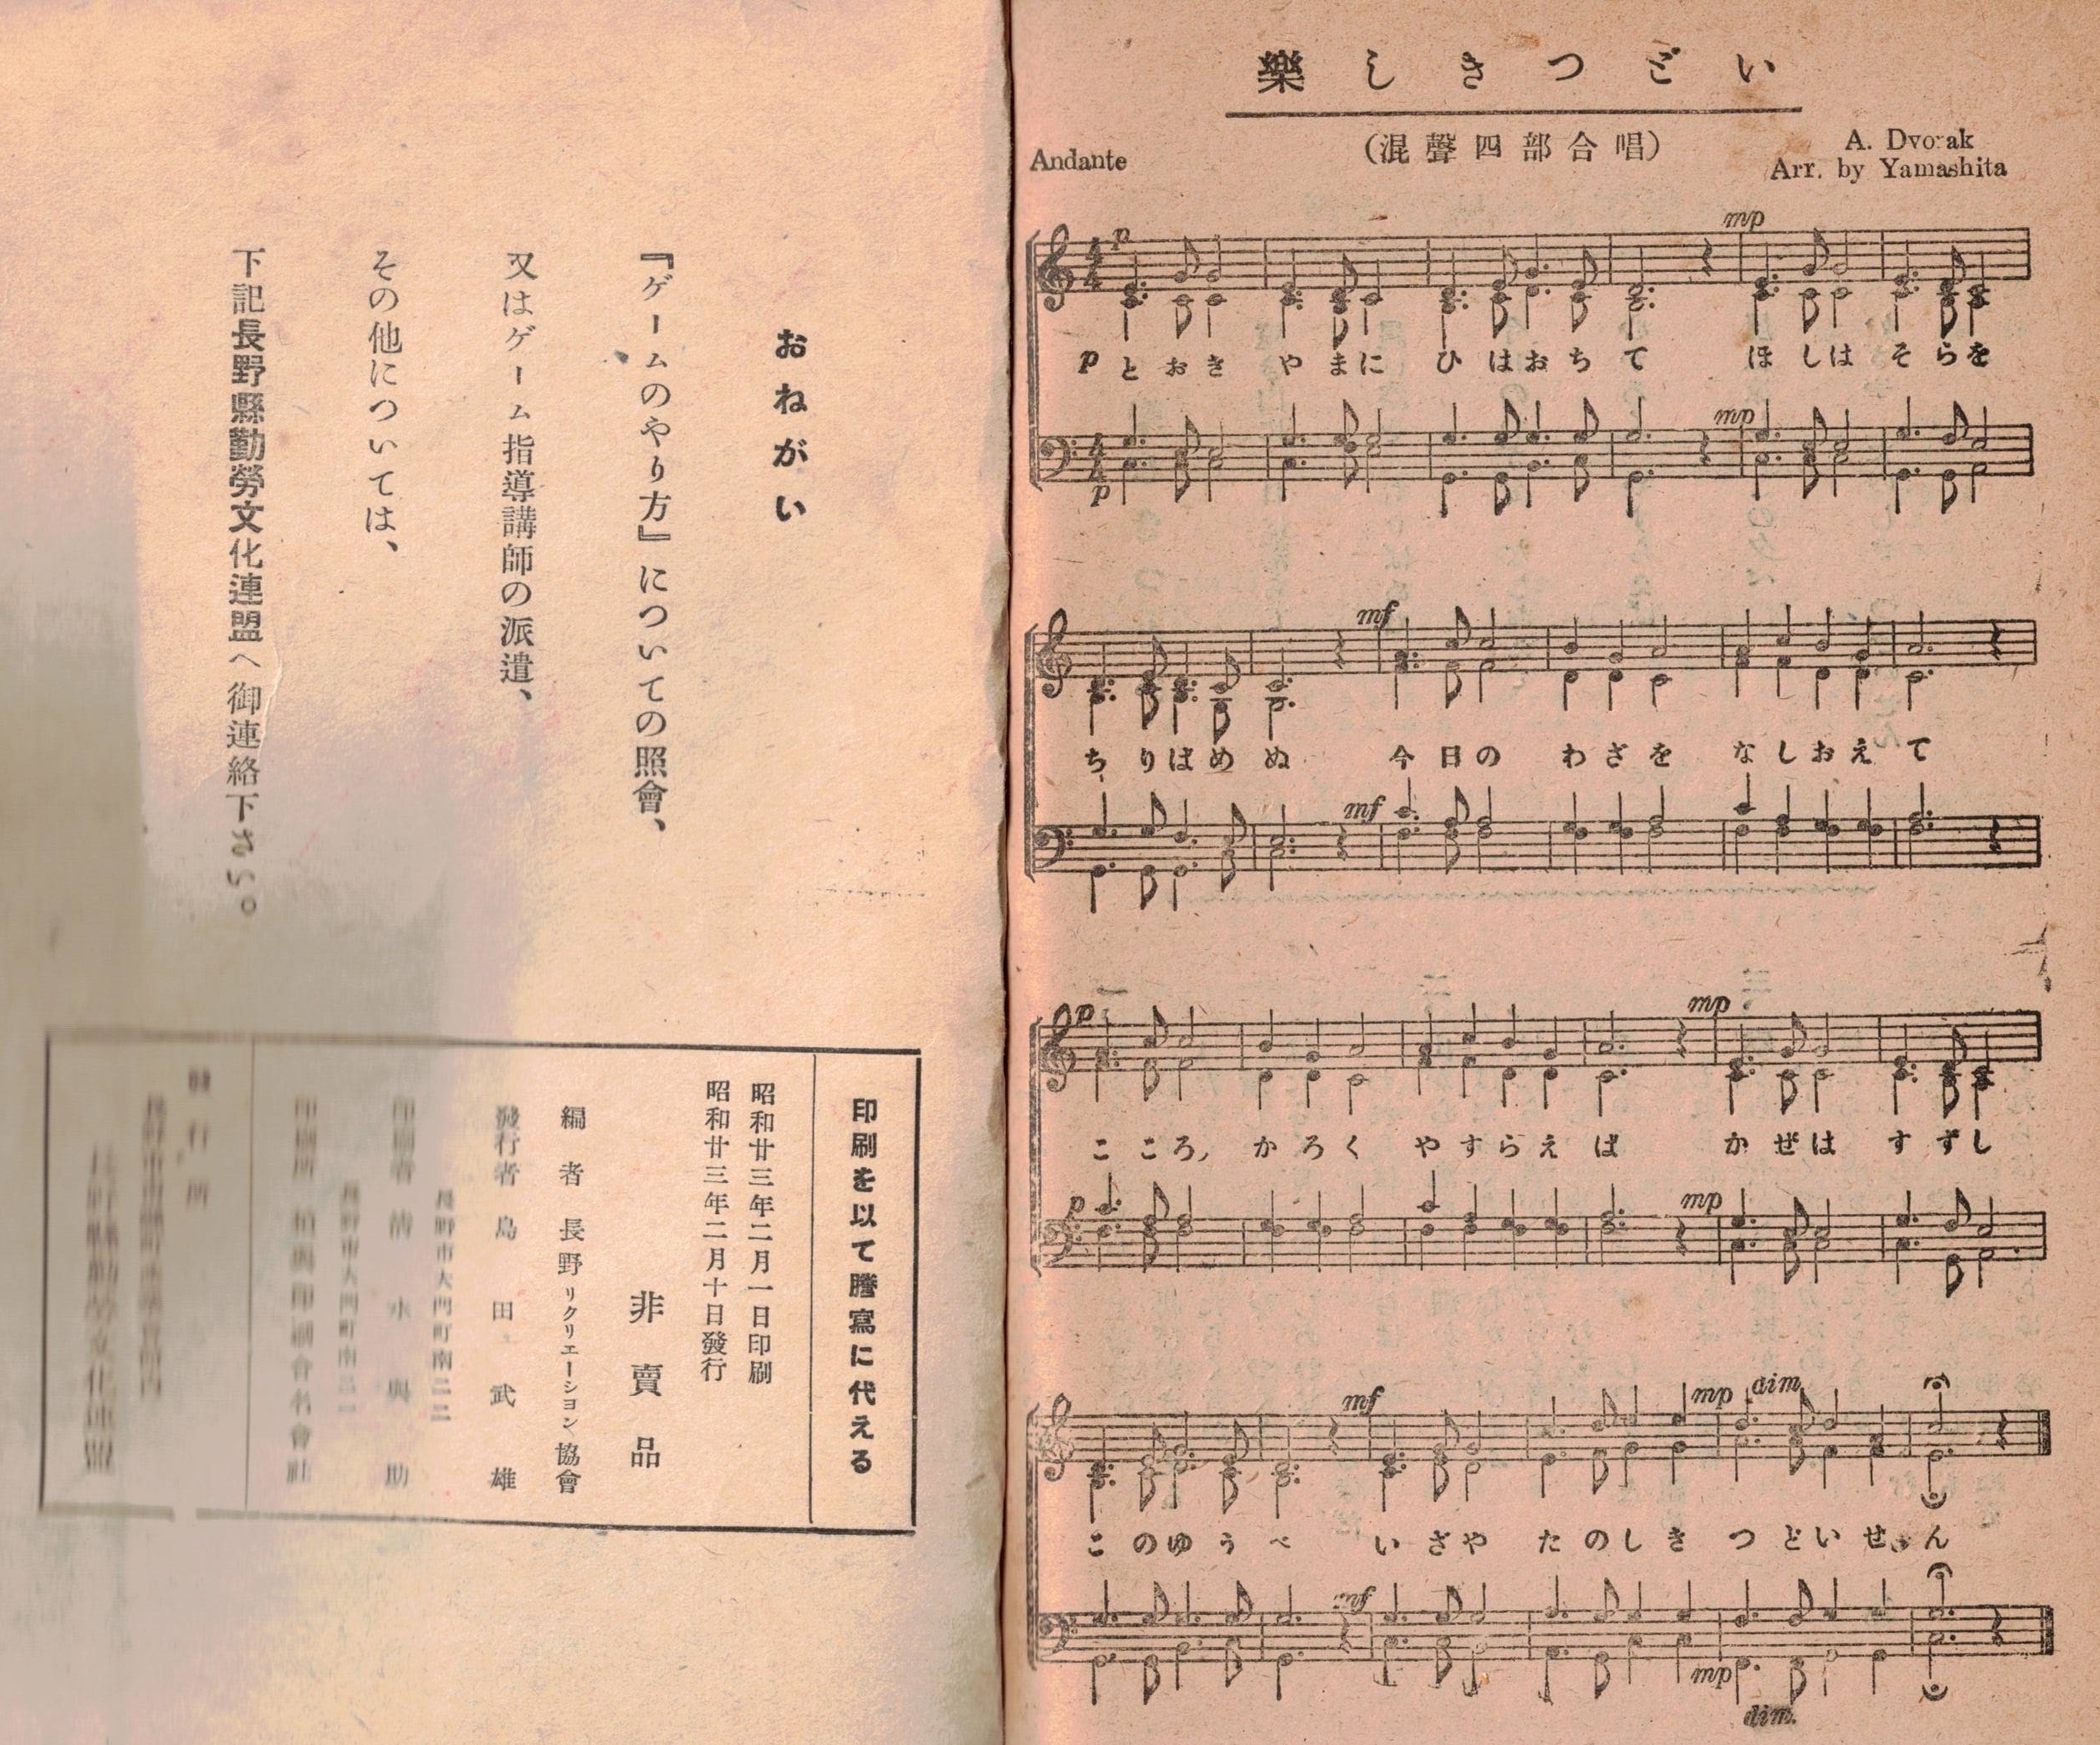 樂しきつどい
(混聲四部合唱)
Andante
A. Dvorak
Arr. by Yamashita
p
mp
p とおき やまに ひはおちて ほしは そらを
mp
p
mf
ちりばめぬ 今日の わざを なしおえて
mf
p
mp
こころ かろく やすらえば かぜは すずし
p
mp
mf
mp
dim.
このゆうべ いざや たのしき つどいせん
mf
mp
dim.
おねがい
『ゲームのやり方』についての照會、
又はゲーム指導講師の派遣、
その他については、
下記長野縣勤勞文化連盟へ御連絡下さい。
印刷を以て謄寫に代える
昭和廿三年二月一日印刷
昭和廿三年二月十日發行
非賣品
編者 長野リクリエーション協會
發行者 島田武雄
長野市大門町南二二
印刷者 清水與助
長野市大門町南二二
發行所
長野縣勤勞文化連盟